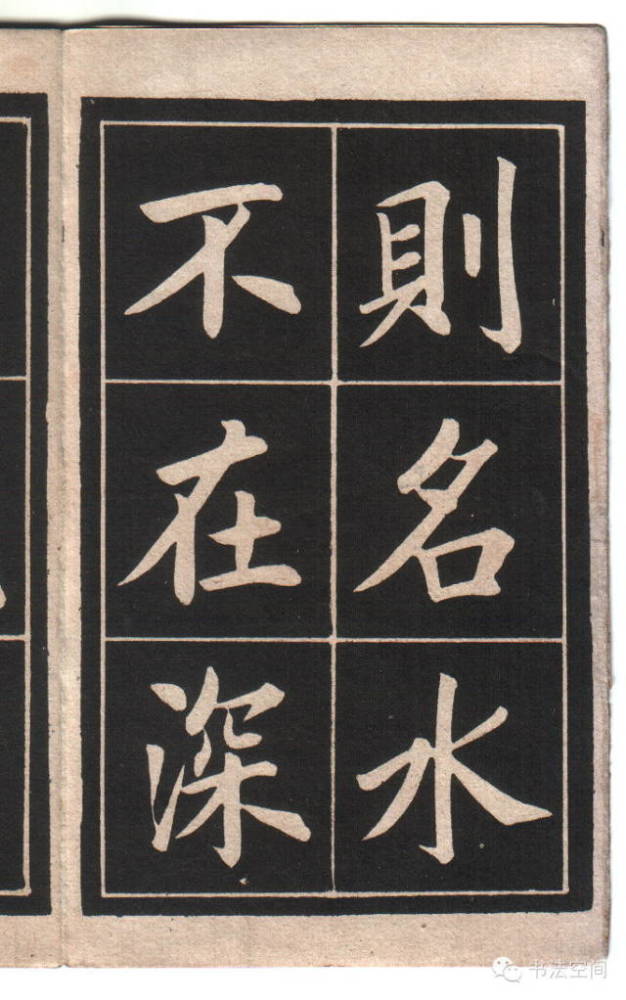 則名水
不在深
书法空间